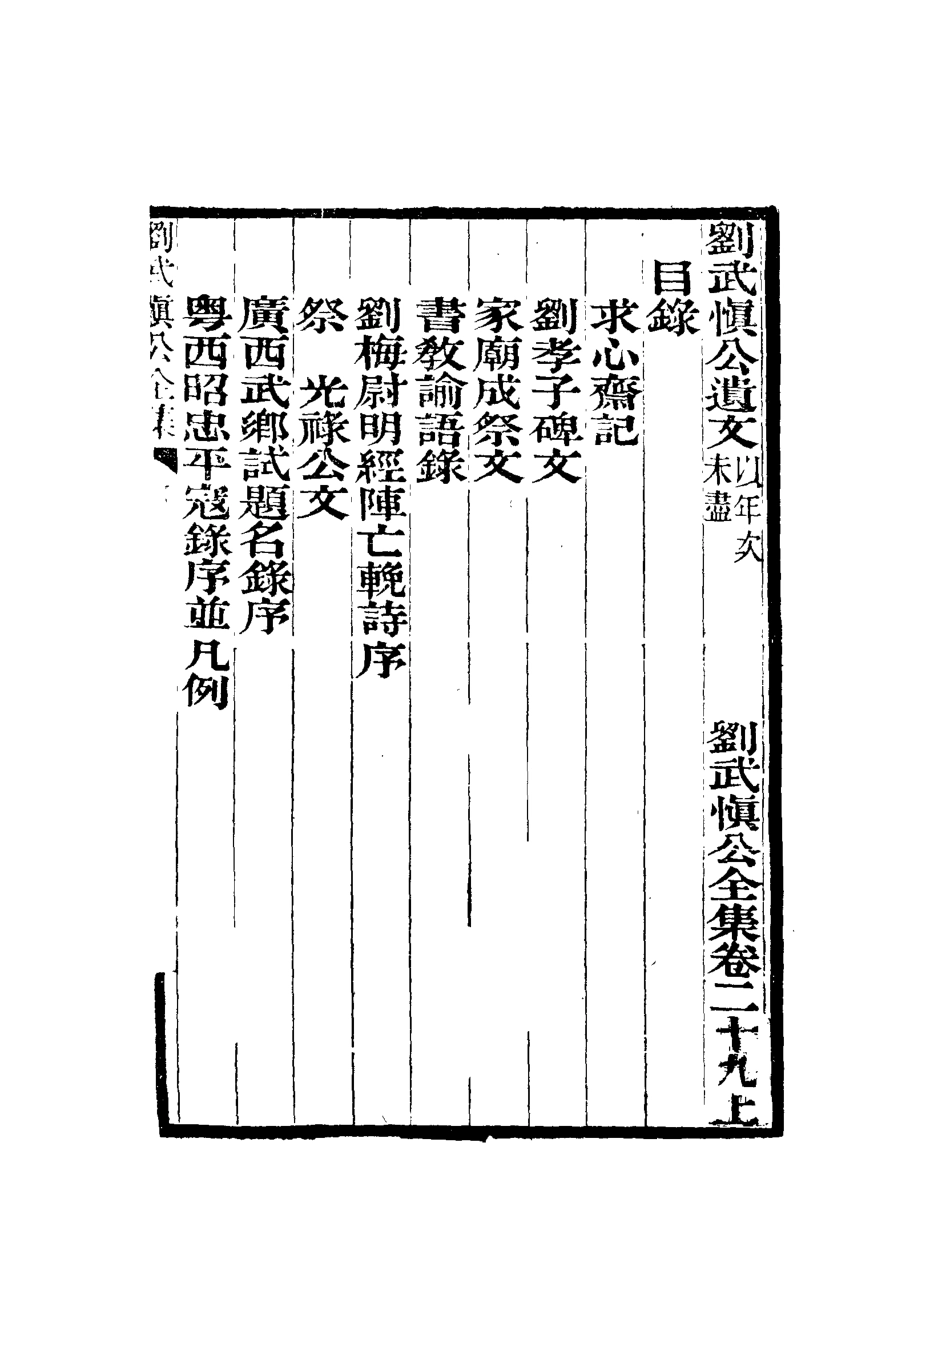 劉武愼公遺文 未盡以年次 劉武愼公全集卷二十九上
目錄
求心齋記
劉孝子碑文
家廟成祭文
書教諭語錄
劉梅尉明經陣亡輓詩序
祭 光祿公文
廣西武鄉試題名錄序
粤西昭忠平寇錄序並凡例
劉武愼公全集